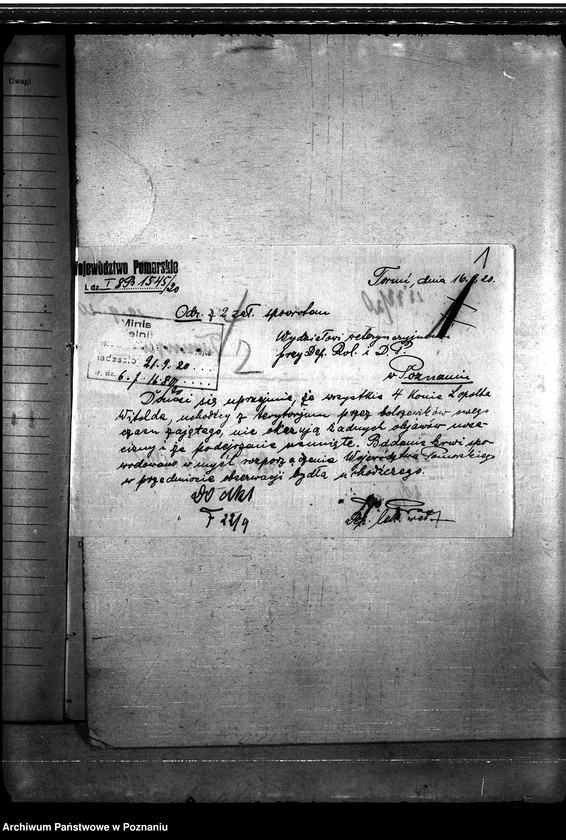 Uwagi
1
Województwo Pomorskie
L. dz. I 8B 1545/20
Toruń, dnia 16.9.20.
Odr. z 2 zał. spowrotem
2
Wydziałowi weterynaryjnemu
przy Dep. Rol. i D. P.
w Poznaniu
Minis
21.9.20
Nr. dz. 6.
Donosi się uprzejmie, że wszystkie 4 konie Leopolda
Witolda, uchodźcy z terytorjum przez bolszewików swego
czasu zajętego, nie okazują żadnych objawów nosa-
cizny i że podejrzenie usunięte. Badanie krwi spo-
wodowano w myśl rozporządzenia Województwa Pomorskiego
w przedmiocie obserwacji bydła uchodźczego.
Do akt
22/9
lek. wet.
Archiwum Państwowe w Poznaniu